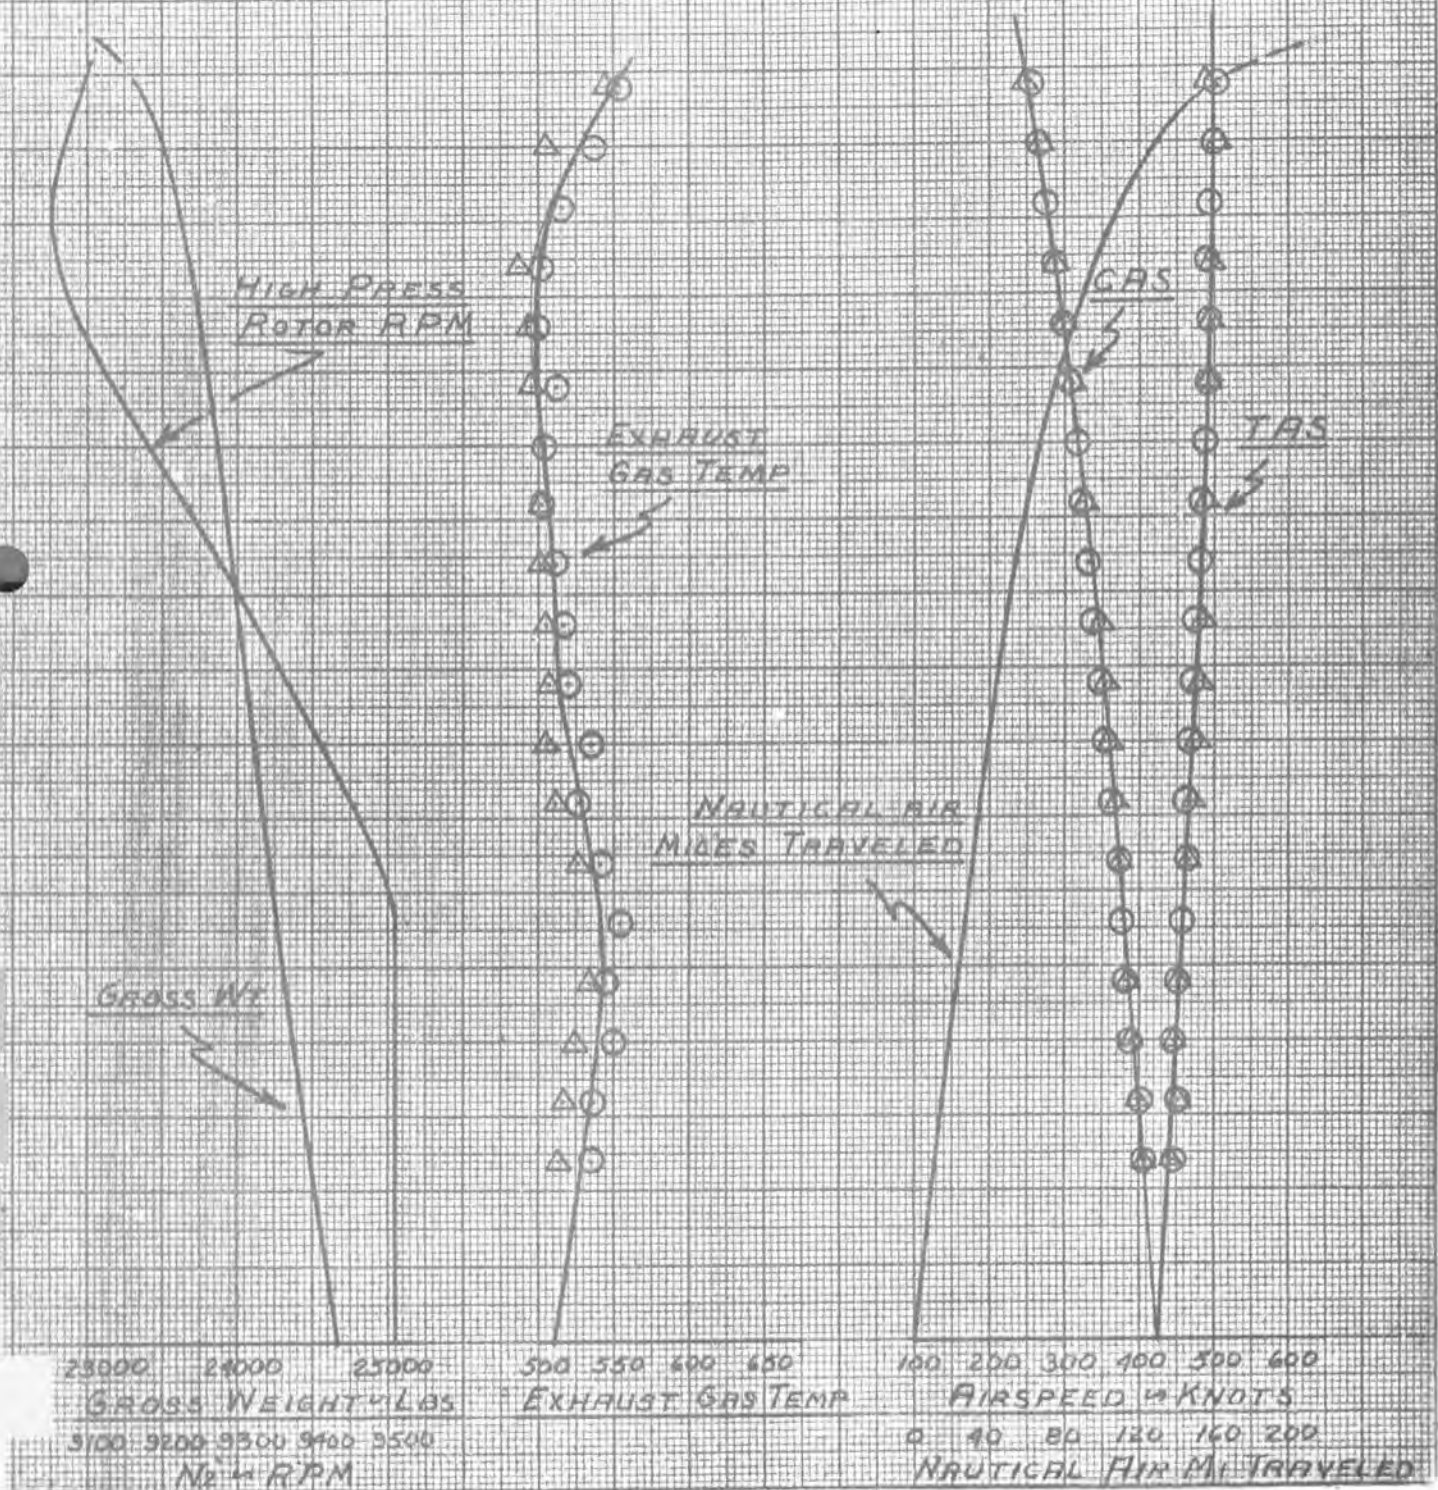 HIGH PRESS
ROTOR RPM
CAS
EXHAUST
GAS TEMP
TAS
NAUTICAL AIR
MILES TRAVELED
GROSS WT
23000 24000 25000
GROSS WEIGHT ~ LBS
9100 9200 9300 9400 9500
N2 ~ RPM
500 550 600 650
EXHAUST GAS TEMP
100 200 300 400 500 600
AIRSPEED ~ KNOTS
0 40 80 120 160 200
NAUTICAL AIR MI TRAVELED